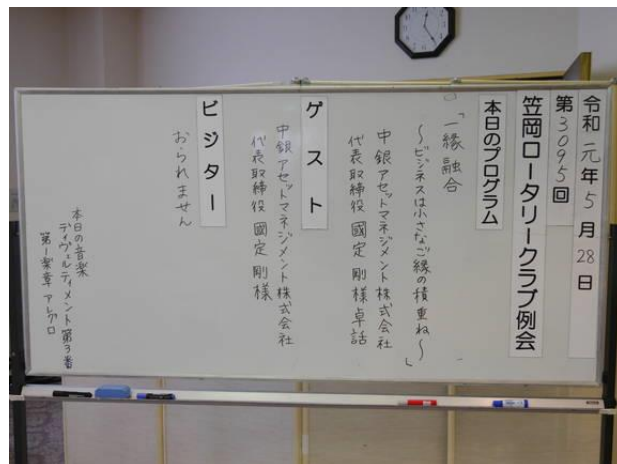 令和元年5月28日
第3095回
笠岡ロータリークラブ例会
本日のプログラム
「一縁融合
～ビジネスは小さなご縁の積重ね～」
中銀アセットマネジメント株式会社
代表取締役 國定 剛様卓話
ゲスト
中銀アセットマネジメント株式会社
代表取締役 國定 剛様
ビジター
おられません
本日の音楽
ディヴェルティメント第3番
第1楽章 アレグロ